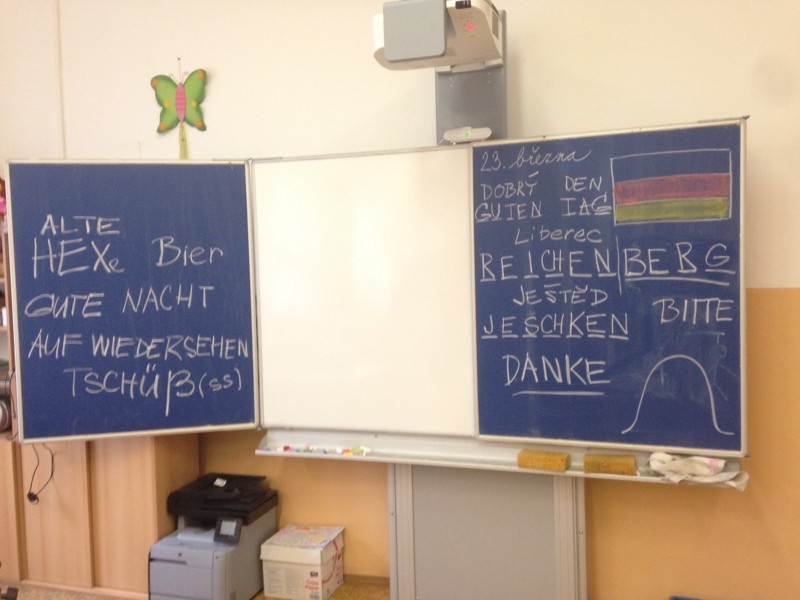 ALTE
HEXe Bier
GUTE NACHT
AUF WIEDERSEHEN
TSCHÜß(ss)
23. března
DOBRÝ DEN
GUTEN TAG
Liberec
REICHEN|BERG
JEŠTĚD
BITTE
JESCHKEN
DANKE